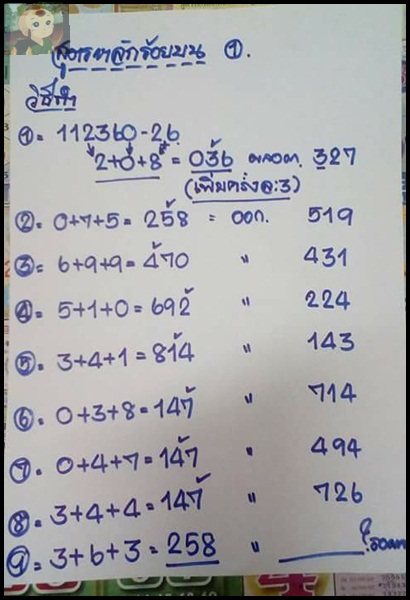 สูตรหลักร้อยบน ①.
วิธีทำ
①= 112360-26
2+0+8 = 036 ผลออก. 327
(เพิ่มครั้งละ3)
②= 0+7+5 = 258 = ออก. 519
③= 6+9+9 = 470 " 431
④= 5+1+0 = 692 " 224
⑤= 3+4+1 = 814 " 143
⑥= 0+3+8 = 147 " 714
⑦= 0+4+7 = 147 " 494
⑧= 3+4+4 = 147 " 726
⑨= 3+6+3 = 258 "